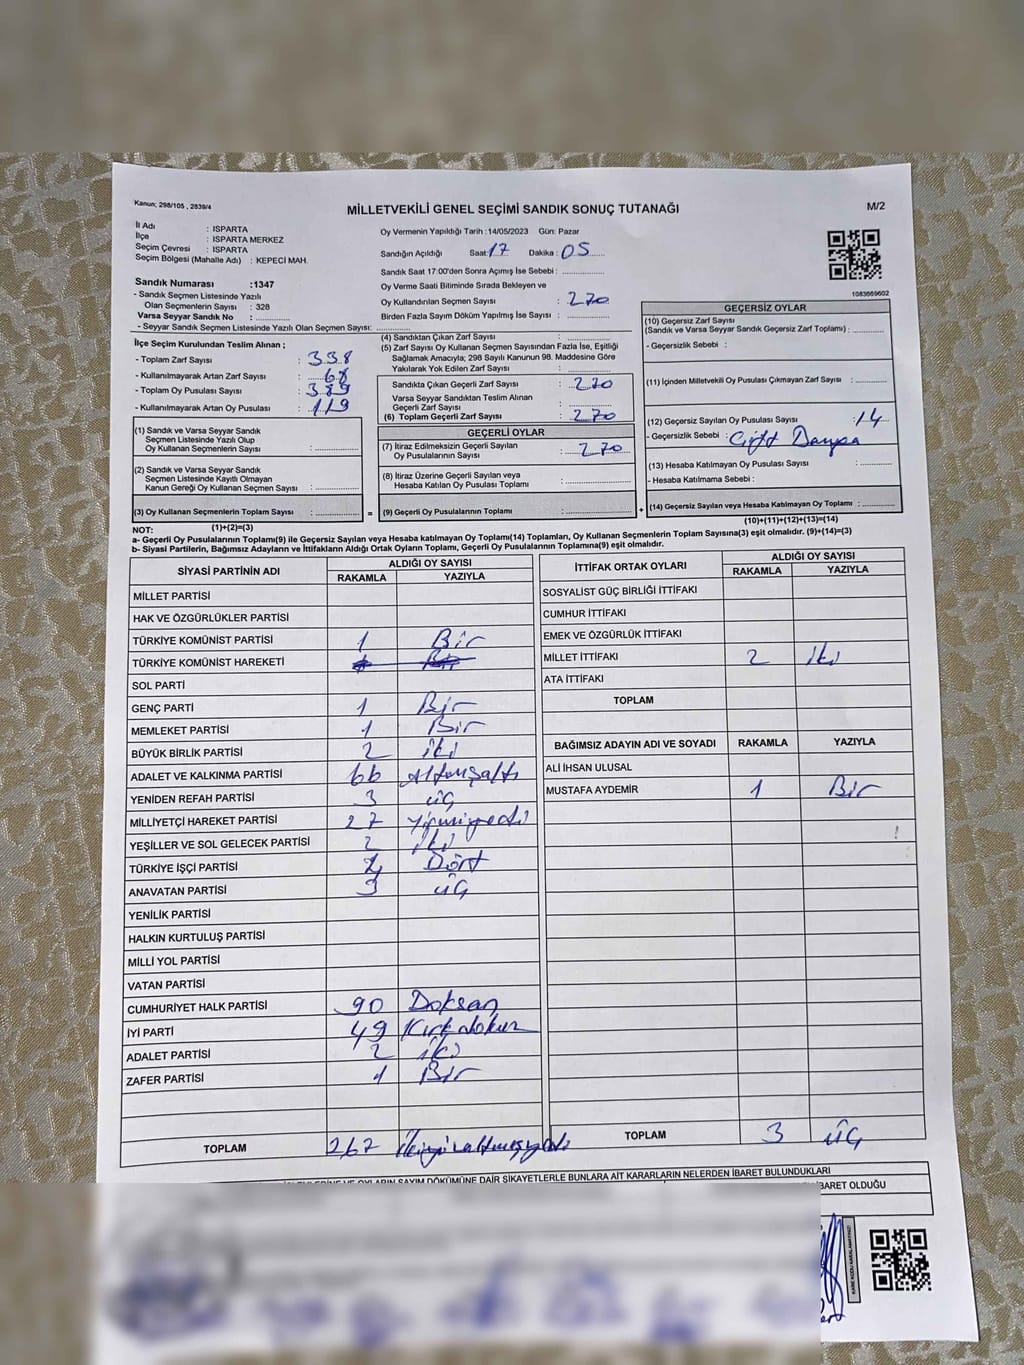 Kanun; 298/105 , 2839/4
MİLLETVEKİLİ GENEL SEÇİMİ SANDIK SONUÇ TUTANAĞI
M/2
İl Adı : ISPARTA
İlçe : ISPARTA MERKEZ
Seçim Çevresi : ISPARTA
Seçim Bölgesi (Mahalle Adı) : KEPECİ MAH.
Sandık Numarası :1347
- Sandık Seçmen Listesinde Yazılı
Olan Seçmenlerin Sayısı : 328
Varsa Seyyar Sandık No :
- Seyyar Sandık Seçmen Listesinde Yazılı Olan Seçmen Sayısı:
Oy Vermenin Yapıldığı Tarih :14/05/2023 Gün: Pazar
Sandığın Açıldığı Saat: 17 Dakika : 05
Sandık Saat 17:00'den Sonra Açımış İse Sebebi :
Oy Verme Saati Bitiminde Sırada Bekleyen ve
Oy Kullandırılan Seçmen Sayısı : 270
Birden Fazla Sayım Döküm Yapılmış İse Sayısı :
1083669602
İlçe Seçim Kurulundan Teslim Alınan ;
- Toplam Zarf Sayısı : 338
- Kullanılmayarak Artan Zarf Sayısı : 68
- Toplam Oy Pusulası Sayısı : 389
- Kullanılmayarak Artan Oy Pusulası : 119
(1) Sandık ve Varsa Seyyar Sandık
Seçmen Listesinde Yazılı Olup
Oy Kullanan Seçmenlerin Sayısı :
(2) Sandık ve Varsa Seyyar Sandık
Seçmen Listesinde Kayıtlı Olmayan
Kanun Gereği Oy Kullanan Seçmen Sayısı :
(3) Oy Kullanan Seçmenlerin Toplam Sayısı :
=
(4) Sandıktan Çıkan Zarf Sayısı :
(5) Zarf Sayısı Oy Kullanan Seçmen Sayısından Fazla İse, Eşitliği
Sağlamak Amacıyla; 298 Sayılı Kanunun 98. Maddesine Göre
Yakılarak Yok Edilen Zarf Sayısı :
Sandıkta Çıkan Geçerli Zarf Sayısı : 270
Varsa Seyyar Sandıktan Teslim Alınan
Geçerli Zarf Sayısı :
(6) Toplam Geçerli Zarf Sayısı : 270
GEÇERLİ OYLAR
(7) İtiraz Edilmeksizin Geçerli Sayılan
Oy Pusulalarının Sayısı : 270
(8) İtiraz Üzerine Geçerli Sayılan veya
Hesaba Katılan Oy Pusulası Toplamı :
(9) Geçerli Oy Pusulalarının Toplamı :
+
GEÇERSİZ OYLAR
(10) Geçersiz Zarf Sayısı
(Sandık ve Varsa Seyyar Sandık Geçersiz Zarf Toplamı) :
- Geçersizlik Sebebi :
(11) İçinden Milletvekili Oy Pusulası Çıkmayan Zarf Sayısı :
(12) Geçersiz Sayılan Oy Pusulası Sayısı : 14
- Geçersizlik Sebebi : Çift Damga
(13) Hesaba Katılmayan Oy Pusulası Sayısı :
- Hesaba Katılmama Sebebi :
(14) Geçersiz Sayılan veya Hesaba Katılmayan Oy Toplamı :
NOT: (1)+(2)=(3)
(10)+(11)+(12)+(13)=(14)
a- Geçerli Oy Pusulalarının Toplamı(9) ile Geçersiz Sayılan veya Hesaba Katılmayan Oy Toplamı(14) Toplamları, Oy Kullanan Seçmenlerin Toplam Sayısına(3) eşit olmalıdır. (9)+(14)=(3)
b- Siyasi Partilerin, Bağımsız Adayların ve İttifakların Aldığı Ortak Oyların Toplamı, Geçerli Oy Pusulalarının Toplamına(9) eşit olmalıdır.
SİYASİ PARTİNİN ADI ALDIĞI OY SAYISI
RAKAMLA YAZIYLA
MİLLET PARTİSİ
HAK VE ÖZGÜRLÜKLER PARTİSİ
TÜRKİYE KOMÜNİST PARTİSİ 1 Bir
TÜRKİYE KOMÜNİST HAREKETİ
SOL PARTİ
GENÇ PARTİ 1 Bir
MEMLEKET PARTİSİ 1 Bir
BÜYÜK BİRLİK PARTİSİ 2 iki
ADALET VE KALKINMA PARTİSİ 66 Altmışaltı
YENİDEN REFAH PARTİSİ 3 üç
MİLLİYETÇİ HAREKET PARTİSİ 27 Yirmiyedi
YEŞİLLER VE SOL GELECEK PARTİSİ 2 iki
TÜRKİYE İŞÇİ PARTİSİ 4 Dört
ANAVATAN PARTİSİ 3 üç
YENİLİK PARTİSİ
HALKIN KURTULUŞ PARTİSİ
MİLLİ YOL PARTİSİ
VATAN PARTİSİ
CUMHURİYET HALK PARTİSİ 90 Doksan
İYİ PARTİ 49 Kırkdokuz
ADALET PARTİSİ 2 iki
ZAFER PARTİSİ 1 Bir
TOPLAM 267 ikiyüzaltmışyedi
İTTİFAK ORTAK OYLARI ALDIĞI OY SAYISI
RAKAMLA YAZIYLA
SOSYALİST GÜÇ BİRLİĞİ İTTİFAKI
CUMHUR İTTİFAKI
EMEK VE ÖZGÜRLÜK İTTİFAKI
MİLLET İTTİFAKI 2 iki
ATA İTTİFAKI
TOPLAM
BAĞIMSIZ ADAYIN ADI VE SOYADI RAKAMLA YAZIYLA
ALİ İHSAN ULUSAL
MUSTAFA AYDEMİR 1 Bir
TOPLAM 3 üç
OYLARIN SAYIM DÖKÜMÜNE DAİR ŞİKAYETLERLE BUNLARA AİT KARARLARIN NELERDEN İBARET BULUNDUKLARI
İBARET OLDUĞU